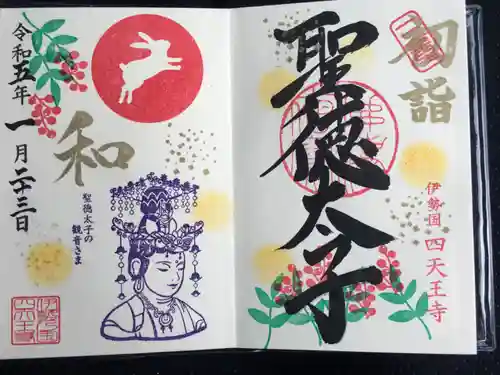 初詣
聖徳太子
伊勢国 四天王寺
和
令和五年一月二十三日
聖徳太子の
観音さま